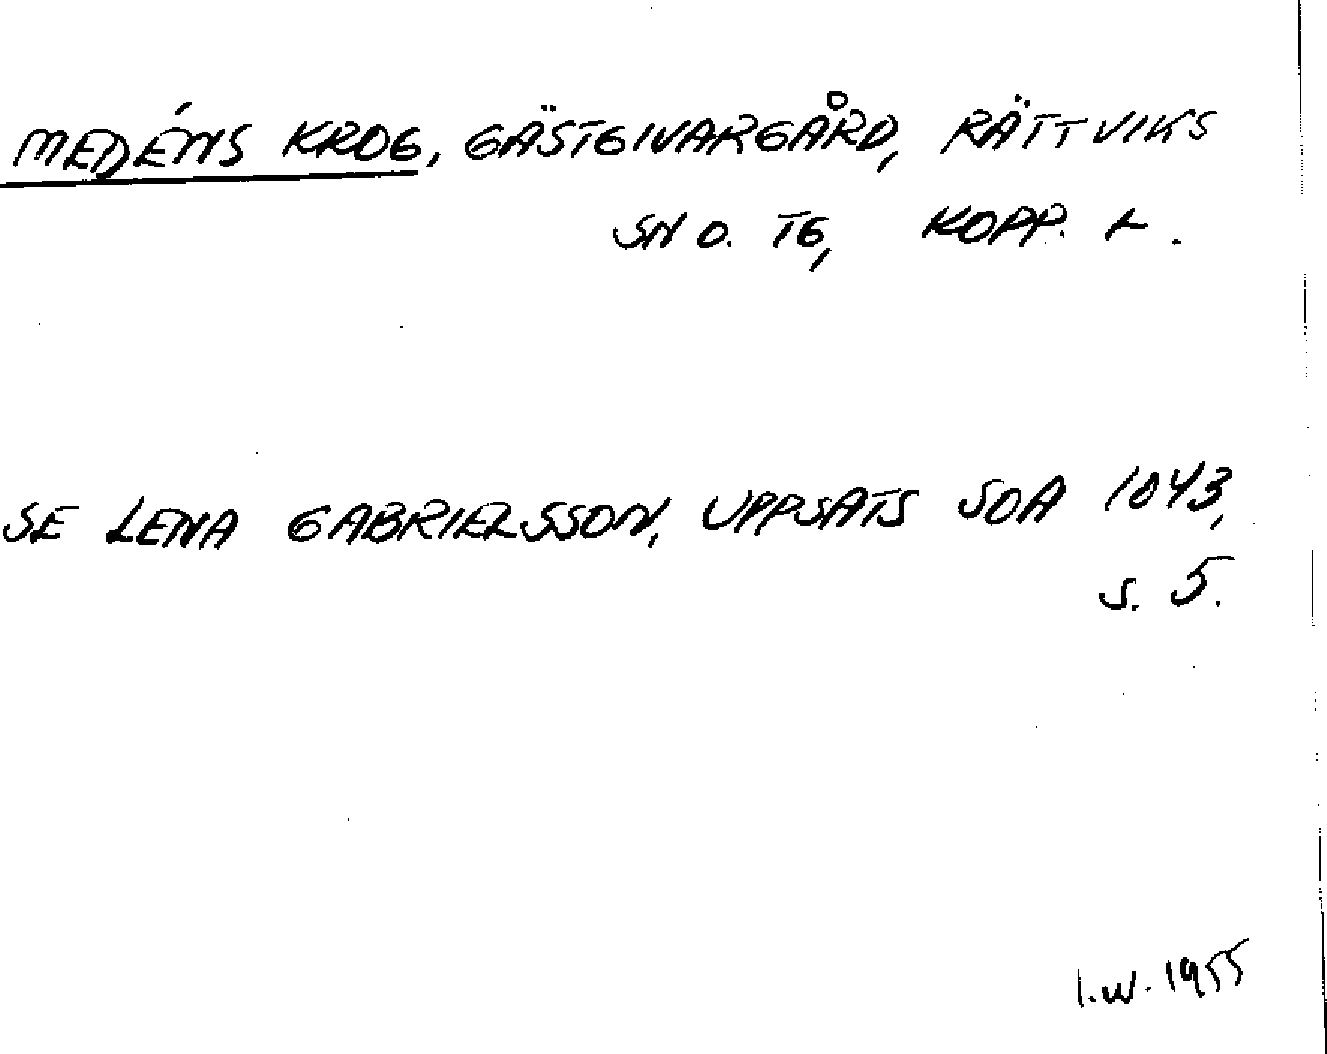 MEDÉNS KROG, GÄSTGIVARGÅRD, RÄTTVIKS
SN O. TG, KOPP. L.
SE LENA GABRIELSSON, UPPSATS SOA 1043,
S. 5.
I.W. 1955